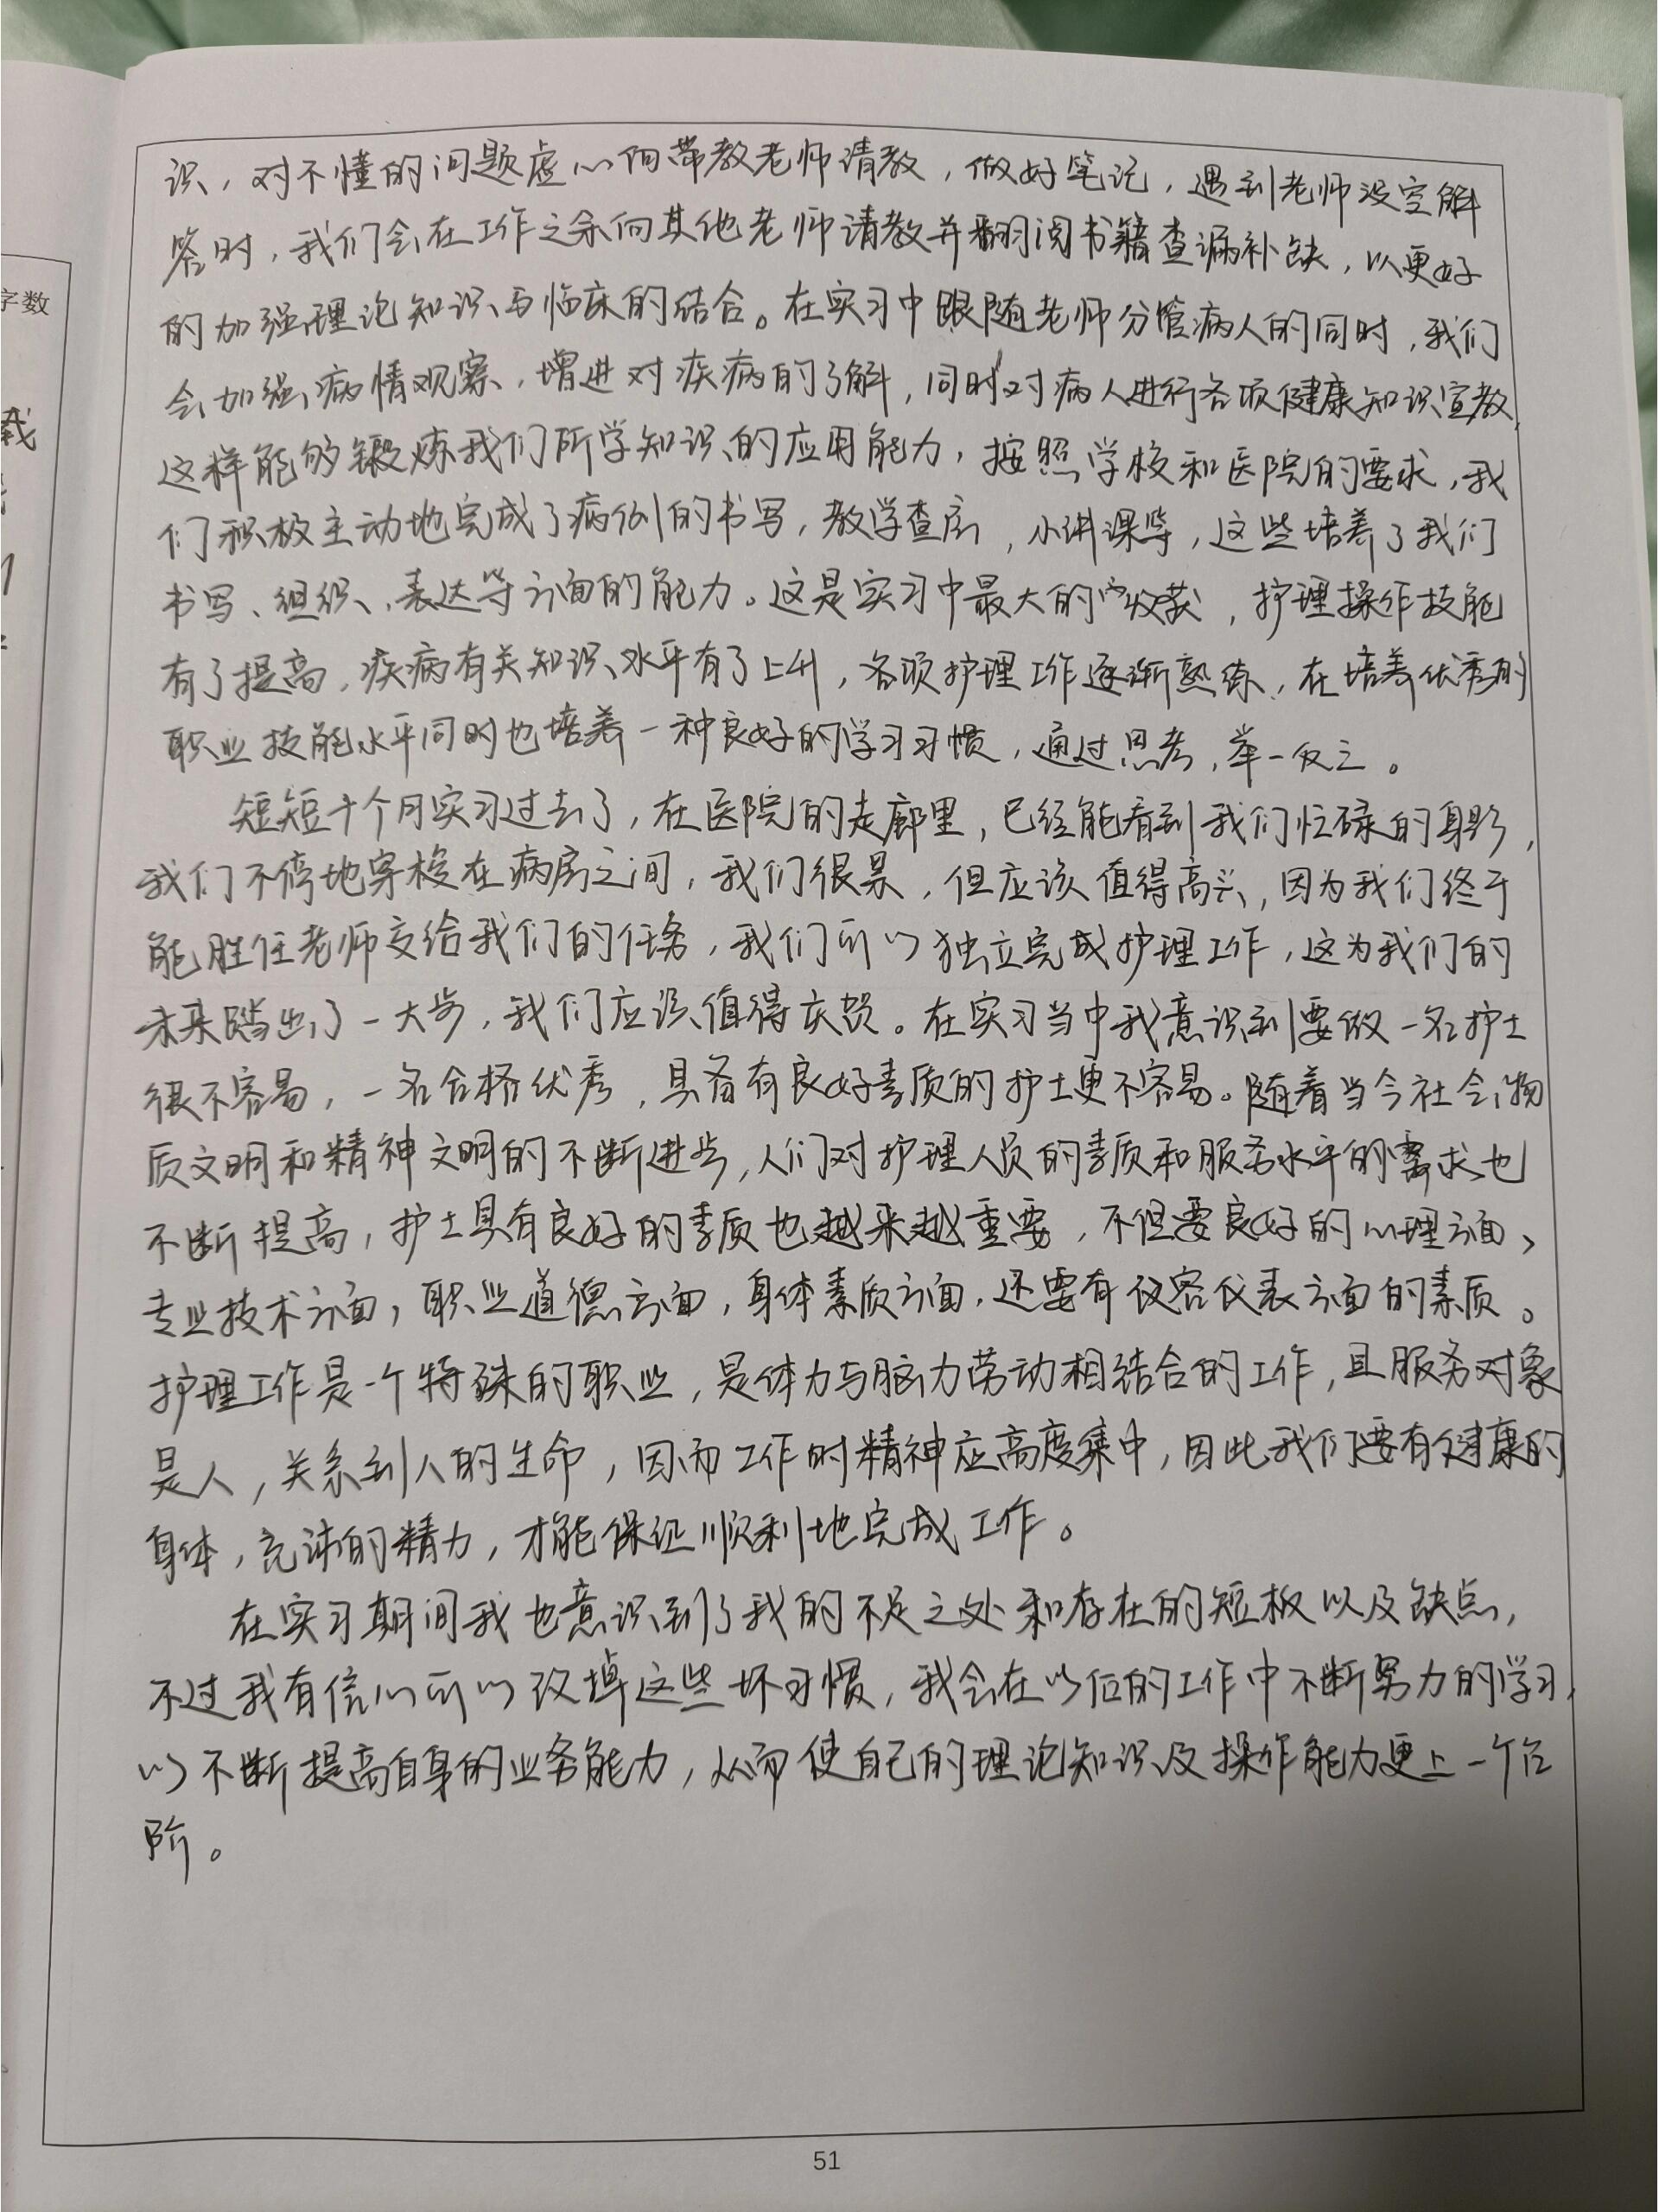 识，对不懂的问题虚心向带教老师请教，做好笔记，遇到老师没空解
答时，我们会在工作之余向其他老师请教并翻阅书籍查漏补缺，以更好
的加强理论知识与临床的结合。在实习中跟随老师分管病人的同时，我们
会加强病情观察，增进对疾病的了解，同时对病人进行各项健康知识宣教，
这样能够锻炼我们所学知识的应用能力，按照学校和医院的要求，我
们积极主动地完成了病例的书写，教学查房，小讲课等，这些培养了我们
书写、组织、表达等方面的能力。这是实习中最大的收获，护理操作技能
有了提高，疾病有关知识水平有了上升，各项护理工作逐渐熟练，在培养优秀的
职业技能水平同时也培养一种良好的学习习惯，通过思考，举一反三。
短短十个月实习过去了，在医院的走廊里，已经能看到我们忙碌的身影，
我们不停地穿梭在病房之间，我们很累，但应该值得高兴，因为我们终于
能胜任老师交给我们的任务，我们可以独立完成护理工作，这为我们的
未来踏出了一大步，我们应该值得庆贺。在实习当中我意识到要做一名护士
很不容易，一名合格优秀，具备有良好素质的护士更不容易。随着当今社会物
质文明和精神文明的不断进步，人们对护理人员的素质和服务水平的需求也
不断提高，护士具有良好的素质也越来越重要，不但要良好的心理方面、
专业技术方面，职业道德方面，身体素质方面，还要有仪容仪表方面的素质。
护理工作是一个特殊的职业，是体力与脑力劳动相结合的工作，且服务对象
是人，关系到人的生命，因而工作时精神应高度集中，因此我们要有健康的
身体，充沛的精力，才能保证顺利地完成工作。
在实习期间我也意识到了我的不足之处和存在的短板以及缺点，
不过我有信心可以改掉这些坏习惯，我会在以后的工作中不断努力的学习，
以不断提高自身的业务能力，从而使自己的理论知识及操作能力更上一个台
阶。
字数
51